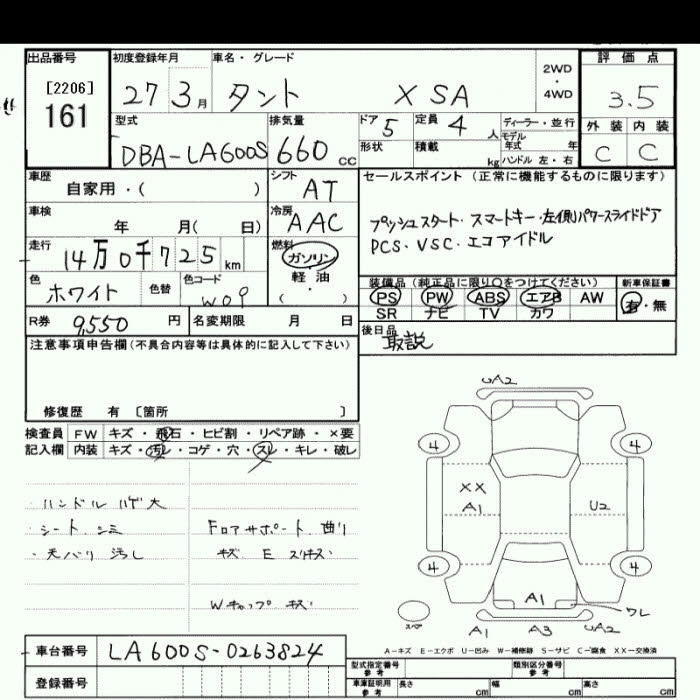 出品番号 初度登録年月 車名・グレード 評価点
[2206] 2WD
161 27 3月 タント X SA ・ 3.5
4WD
型式 排気量 ドア 5 定員 4人 ディーラー・並行 外装 内装
モデル年式 年
DBA-LA600S 660cc 形状 積載 kg ハンドル 左・右 C C
車歴 シフト セールスポイント (正常に機能するものに限ります)
自家用・( ) AT
車検 冷房 プッシュスタート・スマートキー・左側パワースライドドア
年 月( 日) AAC PCS・VSC・エコアイドル
走行 燃料
14万0千725km ガソリン
軽・油
色 色替 色コード ・ 装備品 (純正品に限り〇をつけてください) 新車保証書
ホワイト W09 ( ) PS PW ABS エアB AW 有・無
SR ナビ TV カワ
R券 9,550円 名変期限 月 日 後日品
取説
注意事項申告欄(不具合内容等は具体的に記入して下さい)
修復歴 有 〔箇所 〕
検査員 FW キズ・飛石・ヒビ割・リペア跡・×要
記入欄 内装 キズ・汚レ・コゲ・穴・スレ・キレ・破レ
・ハンドル ハゲ大
・シート シミ Fロアサポート 曲り
・天バリ 汚し キズ E スリキズ
Wキャップ キズ
UA2
4 4
XX
A1 U2
4 4
A1 ワレ
スペア A1 A3 UA2
A-キズ E-エクボ U-凹み W-補修跡 S-サビ C-腐食 XX-交換済
車台番号 LA600S-0263824
登録番号
型式指定番号 参考 類別区分番号 参考
車庫証明用 参考 長さ cm 幅 cm 高さ cm